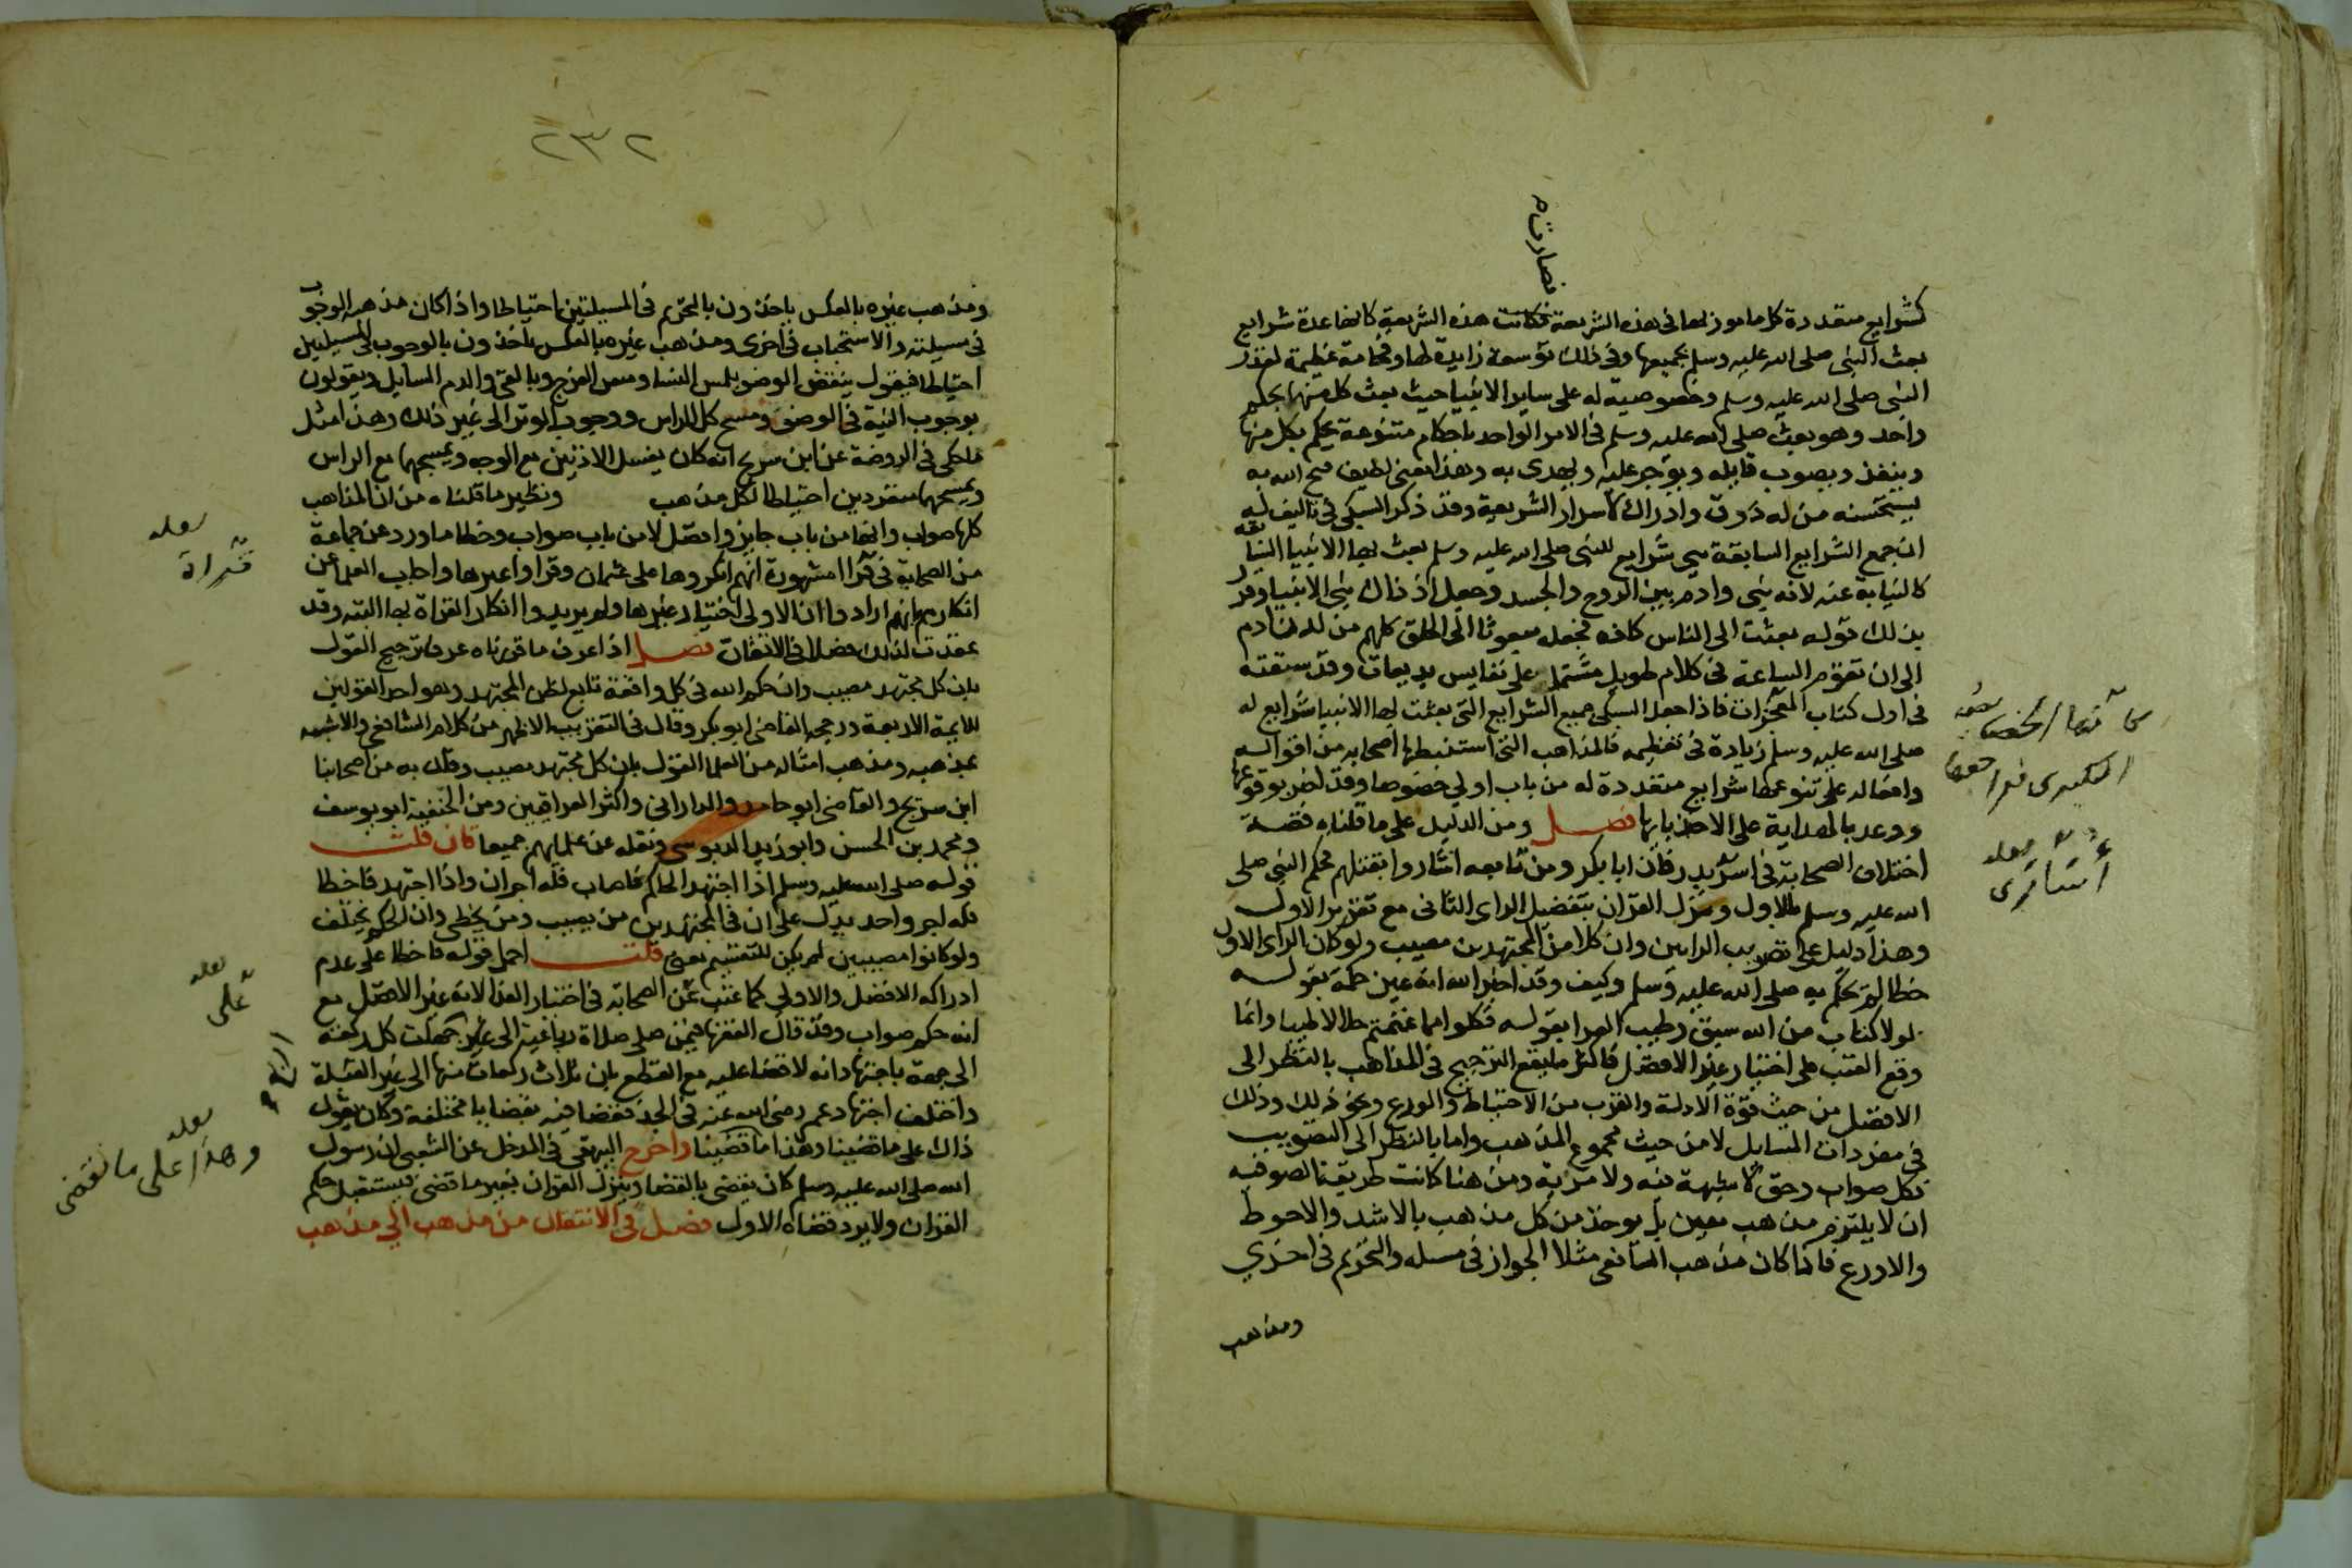 فصارت م
كشرايع متعددة كل مامور بها في هذه الشريعة فكانت هذه الشريعة كانها عدة شرايع
بعث النبي صلى الله عليه وسلم بجميعها وفي ذلك توسعة زايدة لها وفخامة عظيمة لقدر
النبي صلى الله عليه وسلم وخصوصية له على ساير الانبيا حيث بعث كل منهم بحكم
واحد وهو بعث صلى الله عليه وسلم في الامر الواحد باحكام متنوعة يحكم بكل منها
وينفذ ويصوب قايله ويوجر عليه ويهدى به وهذا معنى لطيف فتح الله به
يستحسنه من له ذوق وادراك لاسرار الشريعة وقد ذكر السبكي في تاليف له
ان جمع الشرايع السابقة هي شرايع للنبي صلى الله عليه وسلم بعث بها الانبيا السابقة
كالنيابة عنه لانه نبي وادم بين الروح والجسد وجعل اذ ذاك نبي الانبيا وقرر
بذلك قوله بعثت الى الناس كافة فجعله مبعوثا الى الخلق كلهم من لدن ادم
الى ان تقوم الساعة في كلام طويل مشتمل على نفايس بديعات وقد سقته
في اول كتاب المعجزات فاذا جعل السبكي جميع الشرايع التي بعثت بها الانبيا شرايع له
صلى الله عليه وسلم زيادة في تعظيمه فالمذاهب التي استنبطها اصحابه من اقواله
وافعاله على تنوعها شرايع متعددة له من باب اولى خصوصا وقد اخبر بوقوعها
ووعد بالهداية على الاخذ بايها فصل ومن الدليل على ما قلناه قصة
اختلاف الصحابة في اسر بدر فان ابا بكر ومن تابعه اشاروا بقتلهم فحكم النبي صلى
الله عليه وسلم بالاول ونزل القران بتفضيل الراى الثاني مع تقرير الاول
وهذا دليل على تصويب الرايين وان كلا من المجتهدين مصيب ولو كان الراى الاول
خطا لم يحكم به صلى الله عليه وسلم وكيف وقد اخبر الله انه عين حكمه بقوله
لولا كتاب من الله سبق وطيب الفدا بقوله فكلوا مما غنمتم حلالا طيبا وانما
وقع العتب على اختيار غير الافضل فاكثر ما يقع الترجيح في المذاهب بالنظر الى
الافضل من حيث قوة الادلة والقرب من الاحتياط والورع ونحو ذلك وذلك
في مفردات المسايل لا من حيث مجموع المذهب واما بالنظر الى التصويب
فكل صواب وحق لا شبهة فيه ولا مرية ومن هنا كانت طريقة الصوفيه
ان لا يلتزم مذهب معين بل يوخذ من كل مذهب بالاشد والاحوط
والاورع فاذا كان مذهب الشافعي مثلا الجواز في مسله والتحريم في اخرى
ومذهب
٢٣٢
ومذهب غيره بالعكس ياخذون بالتحريم في المسيلتين احتياطا واذا كان مذهبه الوجوب
في مسيلته والاستحباب في اخرى ومذهب غيره بالعكس ياخذون بالوجوب في المسيلتين
احتياطا فيقول ينقض الوضو بلمس النسا ومس الفرج وبالقي والدم السايل ويقولون
بوجوب النية في الوضو ومسح كل الراس ووجوب الوتر الى غير ذلك وهذا مثل
ما حكي في الروضة عن ابن سريج انه كان يغسل الاذنين مع الوجه ويمسحهما مع الراس
ويمسحهما منفردين احتياطا لكل مذهب ونظير ما قلناه من ان المذاهب
كلها صواب وانها من باب جايز وافضل لا من باب صواب وخطا ما ورد عن جماعة
من الصحابة في قرا مشهورة انهم انكروها على عثمان وقراوا غيرها واجاب العلما عن
انكارهم بانهم ارادوا ان الاولى اختيار غيرها ولم يريدوا انكار القراة بها البته وقد
عقدت لذلك فصلا في الاتقان فصل اذا عرف ما قررناه عرف ترجيح القول
بان كل مجتهد مصيب وان حكم الله في كل واقعة تابع لظن المجتهد وهو احد القولين
للايمة الاربعة ورجحه القاضي ابو بكر وقال في التقريب الاظهر من كلام الشافعي والاشبه
بمذهبه ومذهب امثاله من العلما القول بان كل مجتهد مصيب وقال به من اصحابنا
ابن سريج والقاضي ابو حامد والداراني واكثر العراقيين ومن الحنفية ابو يوسف
ومحمد بن الحسن وابو زيد الدبوسي ونقله عن علمايهم جميعا فان قلت
قوله صلى الله عليه وسلم اذا اجتهد الحاكم فاصاب فله اجران واذا اجتهد فاخطا
فله اجر واحد يدل على ان في المجتهدين من يصيب ومن يخطي وان الحكم يختلف
ولو كانوا مصيبين لم يكن للتقسيم معنى قلت احمل قوله فاخطا على عدم
ادراكه الافضل والاولى كما عتب على الصحابة في اختيار الفدا لانه غير الافضل مع
انه حكم صواب وقد قال الفقها فيمن صلى صلاة رباعية الى غير جهات كل ركعة
الى جهة باجتهاد انه لا قضا عليه مع القطع بان ثلاث ركعات منها الى غير القبلة
واختلف اجتهاد عمر رضي الله عنه في الجد فقضا فيه بقضايا مختلفة وكان يقول
ذاك على ما قضينا وهذا ما قضينا واخرج البيهقي في المدخل عن الشعبي ان رسول
الله صلى الله عليه وسلم كان يقضي بالقضا وينزل القران بغير ما قضى فيستقبل حكم
القران ولا يرد قضاه الاول فصل في الانتقال من مذهب الي مذهب
لعله
قراة
لعله
على
لعله
وهذا على ما نقضي
لعله
أسارى